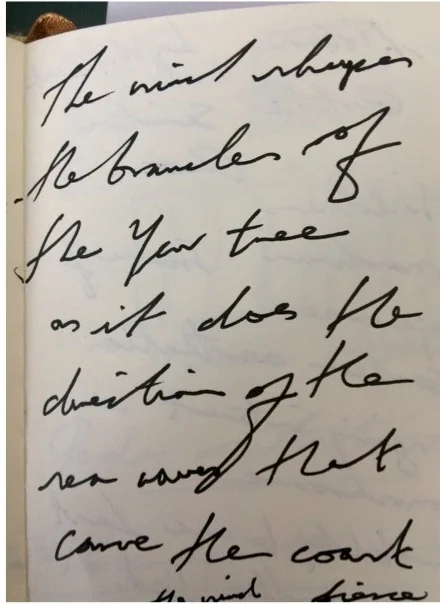 The wind shapes
the branches of
the Yew tree
as it does the
direction of the
sea waves that
carve the coast
the wind fierce